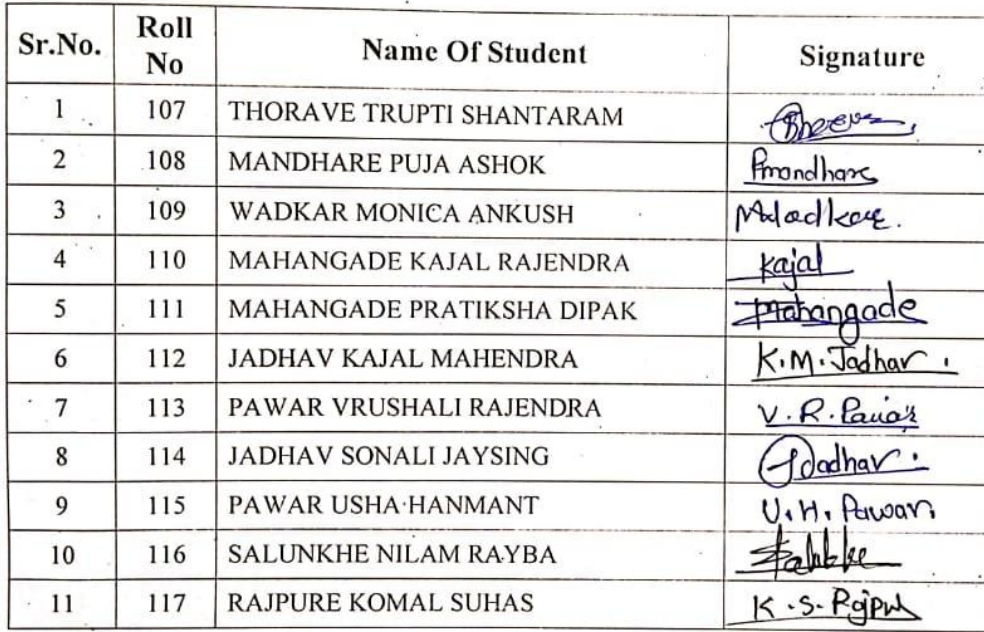 Sr.No. Roll No Name Of Student Signature
1 107 THORAVE TRUPTI SHANTARAM
2 108 MANDHARE PUJA ASHOK Pmandhare
3 109 WADKAR MONICA ANKUSH
4 110 MAHANGADE KAJAL RAJENDRA Kajal
5 111 MAHANGADE PRATIKSHA DIPAK Mahangade
6 112 JADHAV KAJAL MAHENDRA K.M.Jadhav.
7 113 PAWAR VRUSHALI RAJENDRA V.R.Pawar
8 114 JADHAV SONALI JAYSING
9 115 PAWAR USHA HANMANT U.H.Pawar.
10 116 SALUNKHE NILAM RAYBA
11 117 RAJPURE KOMAL SUHAS K.S.